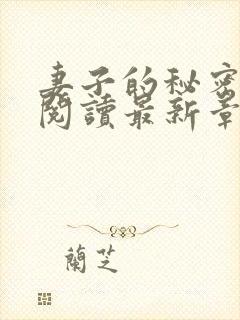 妻子的秘密
閱讀最新章
蘭芝